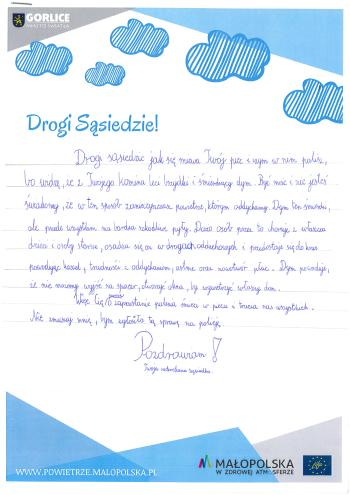 GORLICE
MIASTO ŚWIATŁA
Drogi Sąsiedzie!
Drogi sąsiedzie jak się miewa Twój piec i czym w nim palisz,
bo widzę, że z Twojego komina leci brzydki i śmierdzący dym. Być może i nie jesteś
świadomy, że w ten sposób zanieczyszczasz powietrze, którym oddychamy. Dym ten smrodzi,
ale przede wszystkim ma bardzo szkodliwe pyły. Dużo osób przez to choruje, a zwłaszcza
dzieci i osoby starsze, osadza się on w drogach oddechowych i przedostaje się do krwi
powodując kaszel, trudności z oddychaniem, astmę oraz nowotwór płuc. Dym powoduje,
że nie możemy wyjść na spacer, otworzyć okna, by wywietrzyć własny dom.
Więc Cię proszę o zaprzestanie palenia śmieci w piecu i trucia nas wszystkich.
Nie zmuszaj mnie, bym zgłosiła tą sprawę na policję.
Pozdrawiam!
Twoja sąsiadka.
WWW.POWIETRZE.MALOPOLSKA.PL
MAŁOPOLSKA
W ZDROWEJ ATMOSFERZE
Life